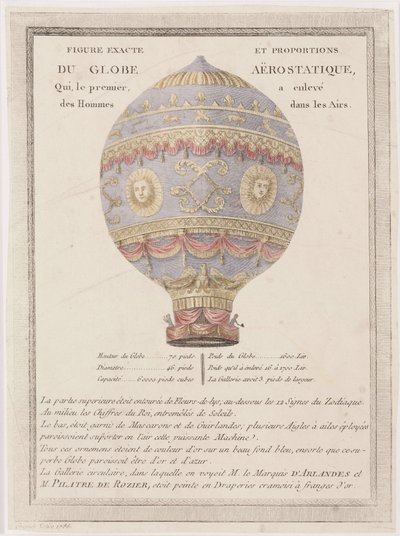 FIGURE EXACTE ET PROPORTIONS
DU GLOBE AËROSTATIQUE,
Qui, le premier, a enlevé
des Hommes dans les Airs.
Hauteur du Globe.........70 pieds
Diametre..................46 pieds
Capacité.........60000 pieds cubes
Poids du Globe............1600 Liv.
Poids qu'il a enlevé 16 à 1700 Liv.
La Gallerie avoit 3 pieds de largeur
La partie superieure étoit entourée de Fleurs-de-lys, au-dessous les 12 Signes du Zodiaque.
Au milieu les Chiffres du Roi, entremêlés de Soleils.
Le bas, étoit garni de Mascarons et de Guirlandes; plusieurs Aigles à ailes éployées
paroissoient suporter en l'air cette puissante Machine.
Tous ces ornemens etoient de couleur d'or sur un beau fond bleu, ensorte que ce su-
perbe Globe paroissoit être d'or et d'azur.
La Gallerie circulaire, dans laquelle on voyoit M. le Marquis D'ARLANDES et
M. PILATRE DE ROZIER, etoit peinte en Draperies cramoisi à franges d'or.
1786